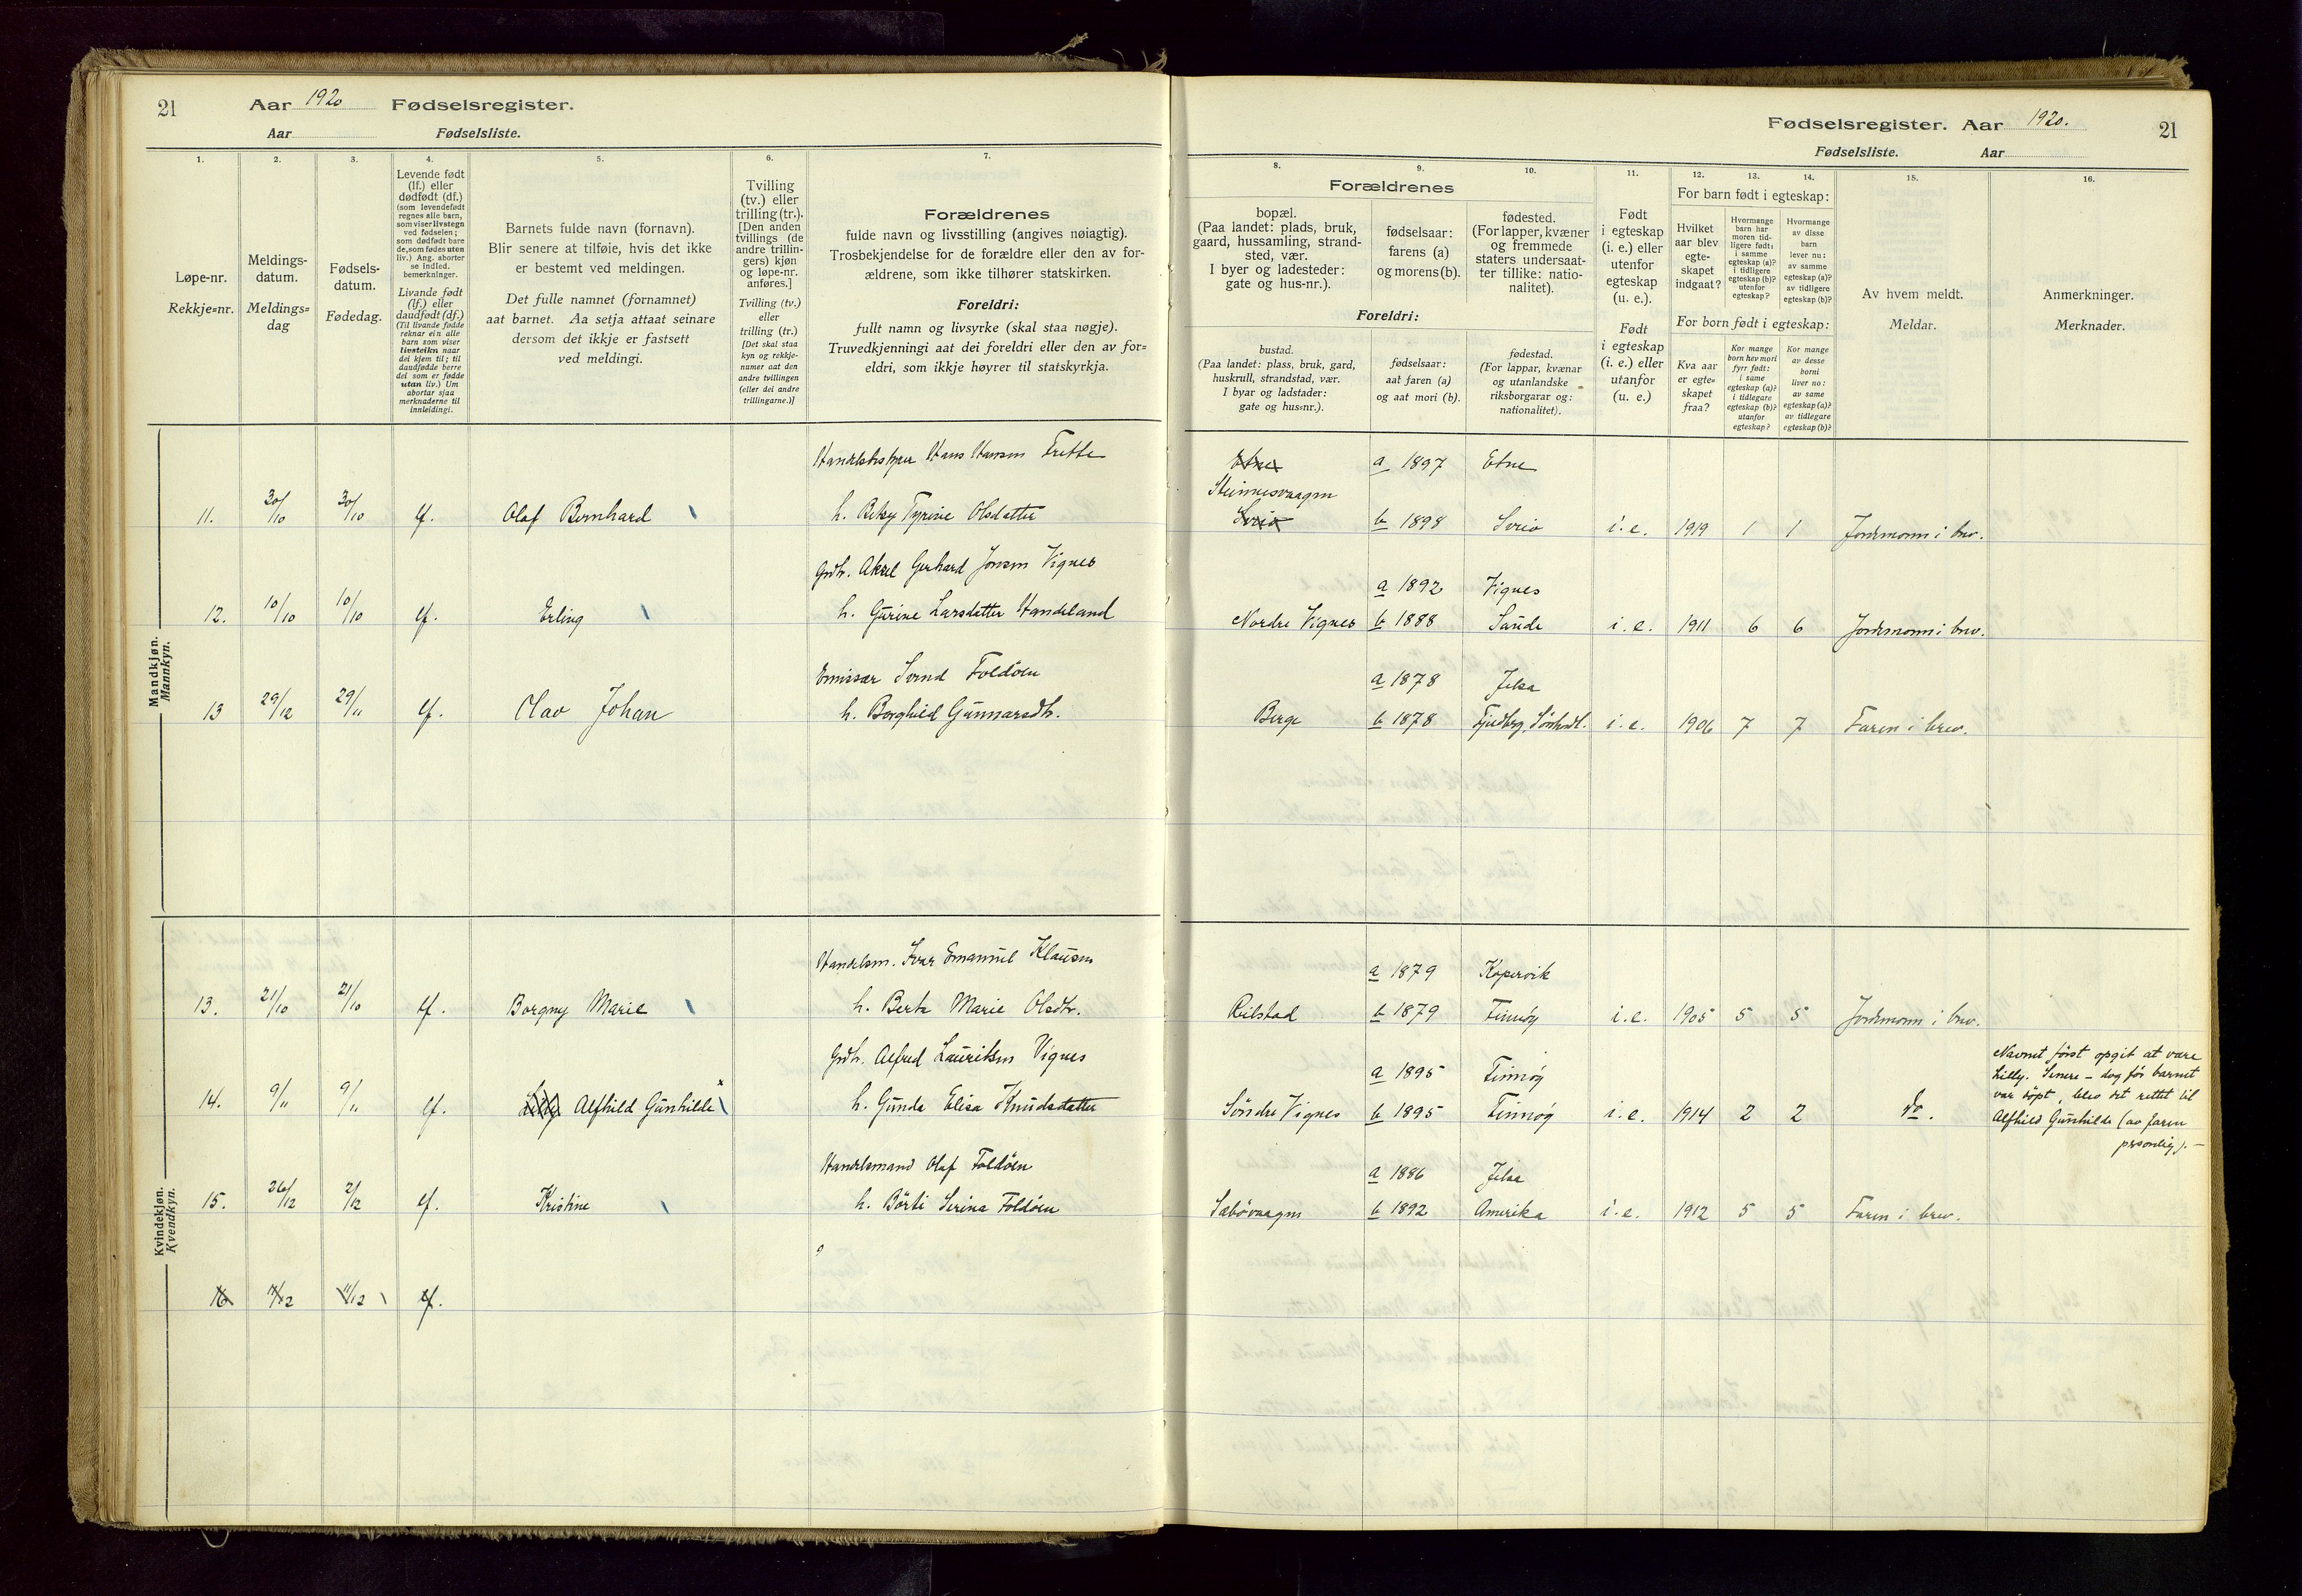 21 Aar 1920 Fødselsregister.
Aar Fødselsliste.
1. 2. 3. 4. 5. 6. 7.
Løpe-nr.
Rekkje=nr.
Meldings-
datum.
Meldings=
dag
Fødsels-
datum.
Fødedag.
Levende født
(lf.) eller
dødfødt (df.)
(som levendefødt
regnes alle barn,
som viser livstegn
ved fødselen;
som dødfødt bare
de, som fødes uten
liv.) Ang. aborter
se indled.
bemerkninger.
Livande født
(lf.) eller
daudfødt (df.)
(Til livande fødde
reknar ein alle
barn som viser
livsteikn naar
dei kjem til; til
daudfødde berre
dei som er fødde
utan liv.) Um
abortar sjaa
merknaderne til
innleidingi.
Barnets fulde navn (fornavn).
Blir senere at tilføie, hvis det ikke
er bestemt ved meldingen.
Det fulle namnet (fornamnet)
aat barnet. Aa setja attaat seinare
dersom det ikkje er fastsett
ved meldingi.
Tvilling
(tv.) eller
trilling (tr.).
[Den anden
tvillings (de
andre trillin-
gers) kjøn
og løpe-nr.
anføres.]
Tvilling (tv.)
eller
trilling (tr.)
[Det skal staa
kyn og rekkje-
numer aat den
andre tvillingen
(eller dei andre
trillingarne.)]
Forældrenes
fulde navn og livsstilling (angives nøiagtig).
Trosbekjendelse for de forældre eller den av for-
ældrene, som ikke tilhører statskirken.
Foreldri:
fullt namn og livsyrke (skal staa nøgje).
Truvedkjenningi aat dei foreldri eller den av for=
eldri, som ikkje høyrer til statskyrkja.
Mandkjøn.
Mannkyn.
Hans Hansen Frette
11. 30/10 30/10 lf. Olaf Bernhard h. Betsy Tyrine Olsdatter
Grdbr. Aksel Gerhard Jonsen Vignes
12. 10/10 10/10 lf. Erling h. Gurine Larsdatter Handeland
Emissær Svend Foldöen
13 29/12 29/11 lf. Olav Johan h. Borghild Gunnarsdtr.
Kvindekjøn.
Kvendkyn.
Handelsm. Ivar Emanuel Klausen
13. 21/10 21/10 lf. Borgny Marie h. Berta Marie Olsdtr.
Grdbr. Alfred Lauritsen Vignes
14. 9/11 9/11 lf. Lilly Alfhild Gunhilde x h. Gunda Elisa Knudsdatter
Handelsmand Olaf Foldöen
15. 26/12 2/12 lf. Kristine h. Börti Serina Foldöen
16 7/12 11/12 lf.
Fødselsregister. Aar 1920. 21
Fødselsliste. Aar
8. 9. 10. 11. 12. 13. 14. 15. 16.
Forældrenes
bopæl.
(Paa landet: plads, bruk,
gaard, hussamling, strand-
sted, vær.
I byer og ladesteder:
gate og hus-nr.).
fødselsaar:
farens (a)
og morens (b).
fødested.
(For lapper, kvæner
og fremmede
staters undersaat-
ter tillike: natio-
nalitet).
Foreldri:
bustad.
(Paa landet: plass, bruk, gard,
huskrull, strandstad, vær.
I byar og ladstader:
gate og hus=nr.).
fødselsaar:
aat faren (a)
og aat mori (b).
fødestad.
(For lappar, kvænar
og utanlandske
riksborgarar og:
nationalitet).
Født
i egteskap
(i. e.) eller
utenfor
egteskap
(u. e.).
Født
i egteskap
(i. e.) eller
utanfor
(u. e.)
For barn født i egteskap:
Hvilket
aar blev
egte-
skapet
indgaat?
Hvormange
barn har
moren tid-
ligere født:
i samme
egteskap (a)?
i tidligere
egteskap (b)?
utenfor
egteskap?
Hvormange
av disse
barn
lever nu:
av samme
egteskap (a)?
av tidligere
egteskap (b)?
For born født i egteskap:
Kva aar
er egte=
skapet
fraa?
Kor mange
born hev mori
fyrr født:
i same
egteskap (a)?
i tidlegare
egteskap (b)?
utanfor
egteskap?
Kor mange
av desse
borni
liver no:
av same
egteskap (a)?
av tidlegare
egteskap (b)?
Av hvem meldt.
Meldar.
Anmerkninger.
Merknader.
Etne a 1897 Etne
Steinnesvaagen
Sveio b 1898 Sveio i.e. 1919 1 1 Jordmoren i brev.
a 1892 Vignes
Nordre Vignes b 1888 Saude i.e. 1911 6 6 Jordmoren i brev.
a 1878 Jelsa
Berge b 1878 i.e. 1906 7 7 Faren i brev.
a 1879 Kopervik
Reilstad b 1879 Finnöy i.e. 1905 5 5 Jordmoren i brev.
a 1895 Finnöy
Söndre Vignes b 1895 Finnöy i.e. 1914 2 2 do.
Navnet först opgit at være
Lilly. Senere – dog för barnet
var döpt, blev det rettet til
Alfhild Gunhilde (av faren
personlig). –
a 1886 Jelsa
Sæbövaagen b 1892 Amerika i.e. 1912 5 5 Faren i brev.